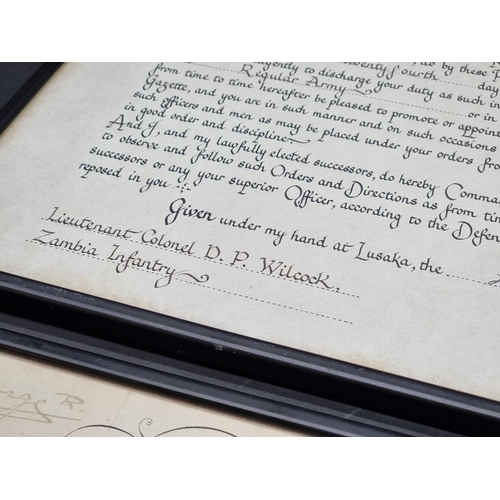 to discharge your duty as such in
Regular Army
from time to time hereafter be pleased to promote or appoin
Gazette, and you are in such manner and on such occasions
such officers and men as may be placed under your orders from
in good order and discipline
And I, and my lawfully elected successors, do hereby Comman
to observe and follow such Orders and Directions as from time
successors or any your superior Officer, according to the Defen
reposed in you
Given under my hand at Lusaka, the
Lieutenant Colonel D. P. Wilcock,
Zambia Infantry